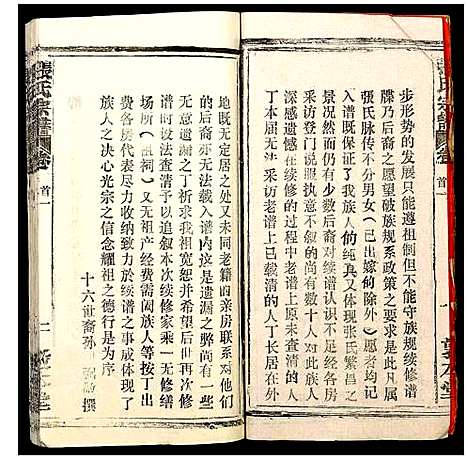 張氏宗譜
卷
首一
步形势的发展只能遵祖制但不能守族规续修谱
牒乃后裔之愿望破族规系政策之要求是此凡属
張氏脉传不分男女（已出嫁的除外）愿者均记
入谱既保证了我族人的纯真又体现了张氏繁昌之
景况然而仍有少数后裔对续谱认识不足经各房
采访登门解说执意不叙的尚有数十人对此族人
深感遗憾在续修的过程中老谱上原未查清的人
丁本届无法采访老谱上已载的人丁长居在外
地既无定居之处又未同老籍四亲房联系对他们
的后裔亦无法载入谱内这是遗漏之弊尚有一些
无意遗漏之丁祈求我祖宽恕并希望后世再次续
谱时设法查清予以追叙本次续修家乘一无修缮
场所（祖祠）又无祖产经费需阖族人等按丁出
费各房代表尽力收纳致力於续谱之事成体现了
族人之决心光宗之信念耀祖之德行是为序
十六世裔孙
撰
張氏宗譜
卷
首一
二